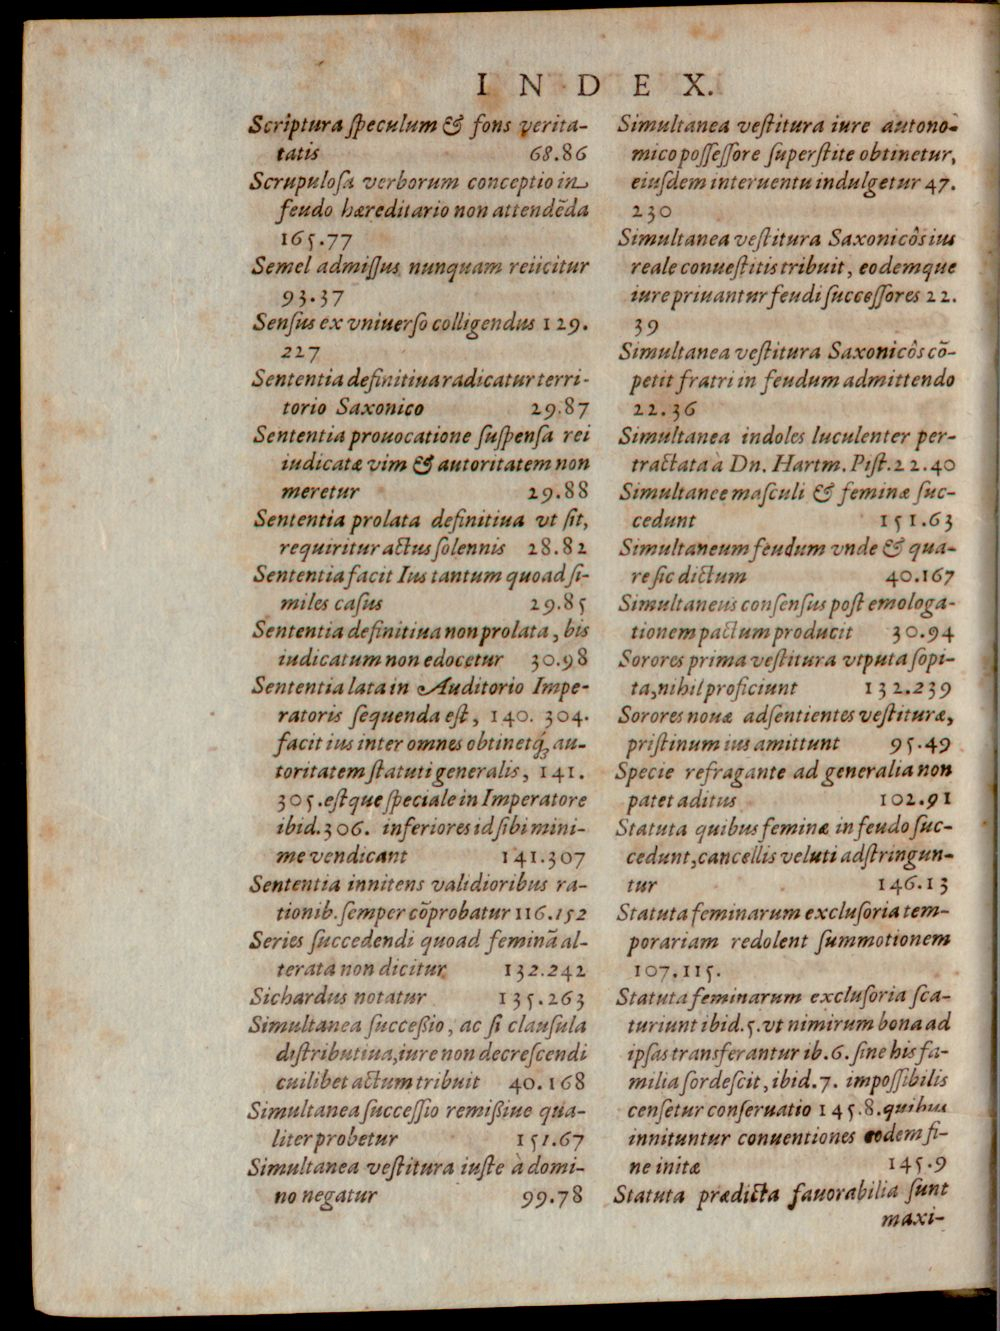 INDEX.
Scriptura ſpeculum & fons verita-
tatis 68.86
Scrupuloſa verborum conceptio in
feudo hæreditario non attendēda
165.77
Semel admiſſus nunquam reiicitur
93.37
Senſus ex vniuerſo colligendus 129.
227
Sententia definitiua radicatur terri-
torio Saxonico 29.87
Sententia prouocatione ſuſpenſa rei
iudicatæ vim & autoritatem non
meretur 29.88
Sententia prolata definitiua vt ſit,
requiritur actus ſolennis 28.82
Sententia facit Ius tantum quoad ſi-
miles caſus 29.85
Sententia definitiua non prolata, bis
iudicatum non edocetur 30.98
Sententia lata in Auditorio Impe-
ratoris ſequenda eſt, 140. 304.
facit ius inter omnes obtinetq́; au-
toritatem ſtatuti generalis, 141.
305. eſtque ſpeciale in Imperatore
ibid. 306. inferiores id ſibi mini-
me vendicant 141.307
Sententia innitens validioribus ra-
tionib. ſemper cōprobatur 116.152
Series ſuccedendi quoad feminā al-
terata non dicitur 132.242
Sichardus notatur 135.263
Simultanea ſucceßio, ac ſi clauſula
diſtributiua, iure non decreſcendi
cuilibet actum tribuit 40.168
Simultanea ſucceſſio remißiue qua-
liter probetur 151.67
Simultanea veſtitura iuſte à domi-
no negatur 99.78
Simultanea veſtitura iure autono-
mico poſſeſſore ſuperſtite obtinetur,
eiuſdem interuentu indulgetur 47.
230
Simultanea veſtitura Saxonicôs ius
reale conueſtitis tribuit, eodemque
iure priuantur feudi ſucceſſores 22.
39
Simultanea veſtitura Saxonicôs cō-
petit fratri in feudum admittendo
22.36
Simultanea indoles luculenter per-
tractata à Dn. Hartm. Piſt. 22.40
Simultanee maſculi & feminæ ſuc-
cedunt 151.63
Simultaneum feudum vnde & qua-
re ſic dictum 40.167
Simultaneus conſenſus poſt emologa-
tionem pactum producit 30.94
Sorores prima veſtitura vtputa ſopi-
ta, nihil proficiunt 132.239
Sorores nouæ adſentientes veſtituræ,
priſtinum ius amittunt 95.49
Specie refragante ad generalia non
patet aditus 102.91
Statuta quibus feminæ in feudo ſuc-
cedunt, cancellis veluti adſtringun-
tur 146.13
Statuta feminarum excluſoria tem-
porariam redolent ſummotionem
107.115.
Statuta feminarum excluſoria ſca-
turiunt ibid. 5. vt nimirum bona ad
ipſas transferantur ib. 6. ſine his fa-
milia ſordeſcit, ibid. 7. impoſſibilis
cenſetur conſeruatio 145.8. quibus
innituntur conuentiones eodem fi-
ne initæ 145.9
Statuta prædicta fauorabilia ſunt
maxi-